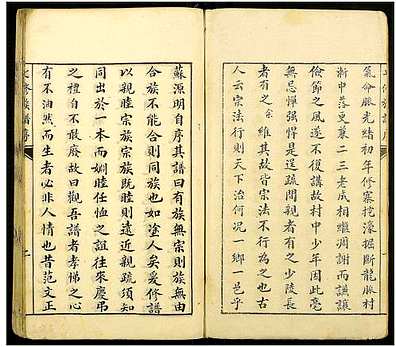 氣命脈光緒初年修寨挖濠掘斷龍脈村
漸中落吏蕪二三老成相繼凋謝而謙讓
儉節之風遂不復講故村中少年因此毫
無忌憚強悍是逞疏間親者有之少陵長
者有之余維其故皆宗法不行為之也古
人云宗法行則天下治何况一鄉一邑乎
蘇源明自序其譜曰有族無宗則族無由
合族不能合則同族也如塗人矣爰修譜
以親睦宗族宗族既睦則遠近親疏須知
同出於一本而婣睦任恤之誼往來慶弔
之禮自不敢廢故曰觀吾譜者孝悌之心
有不油然而生者必非人情也昔范文正
族譜序
二